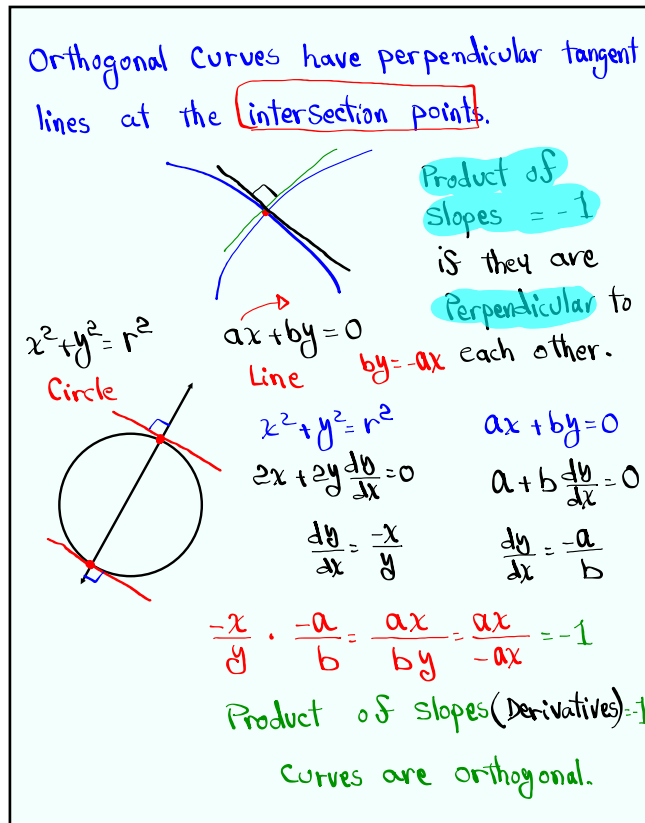 Orthogonal Curves have perpendicular tangent
lines at the intersection points.
Product of
Slopes = -1
if they are
Perpendicular to
each other.
x²+y²=r²
Circle
ax+by=0
Line
by=-ax
x²+y²=r²
2x+2y dy/dx=0
dy/dx=-x/y
ax+by=0
a+b dy/dx=0
dy/dx=-a/b
-x/y · -a/b = ax/by = ax/-ax = -1
Product of Slopes (Derivatives)=-1
Curves are orthogonal.